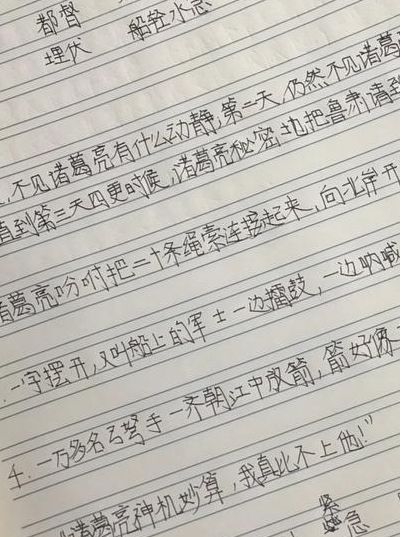 都督 船轻水急
埋伏
不见诸葛亮有什么动静,第二天,仍然不见诸葛
直到第三天四更时候,诸葛亮秘密地把鲁肃请到
诸葛亮吩咐把二十条绳索连接起来,向北岸开
一字摆开,又叫船上的军士一边擂鼓,一边呐喊
4. 一万多名弓弩手一齐朝江中放箭,箭好像
诸葛亮神机妙算,我真比不上他!”
紧急